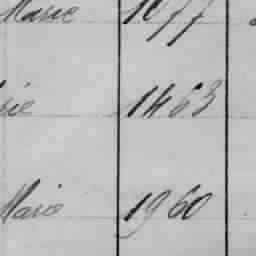 Marie 1077
rie 1463
Marie 1960